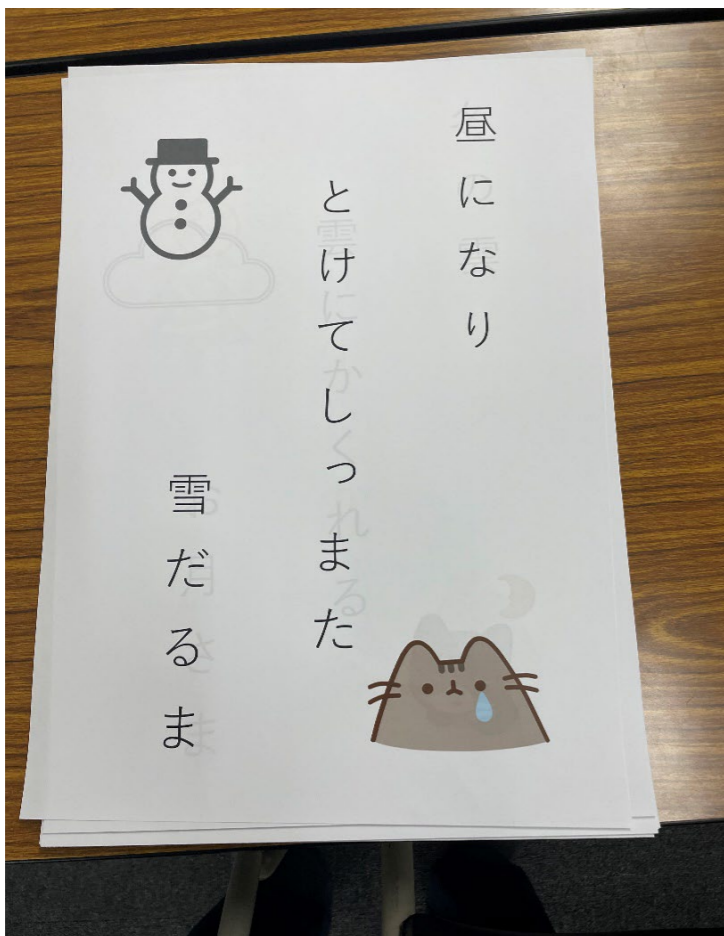 昼になり
とけてしっまた
雪だるま